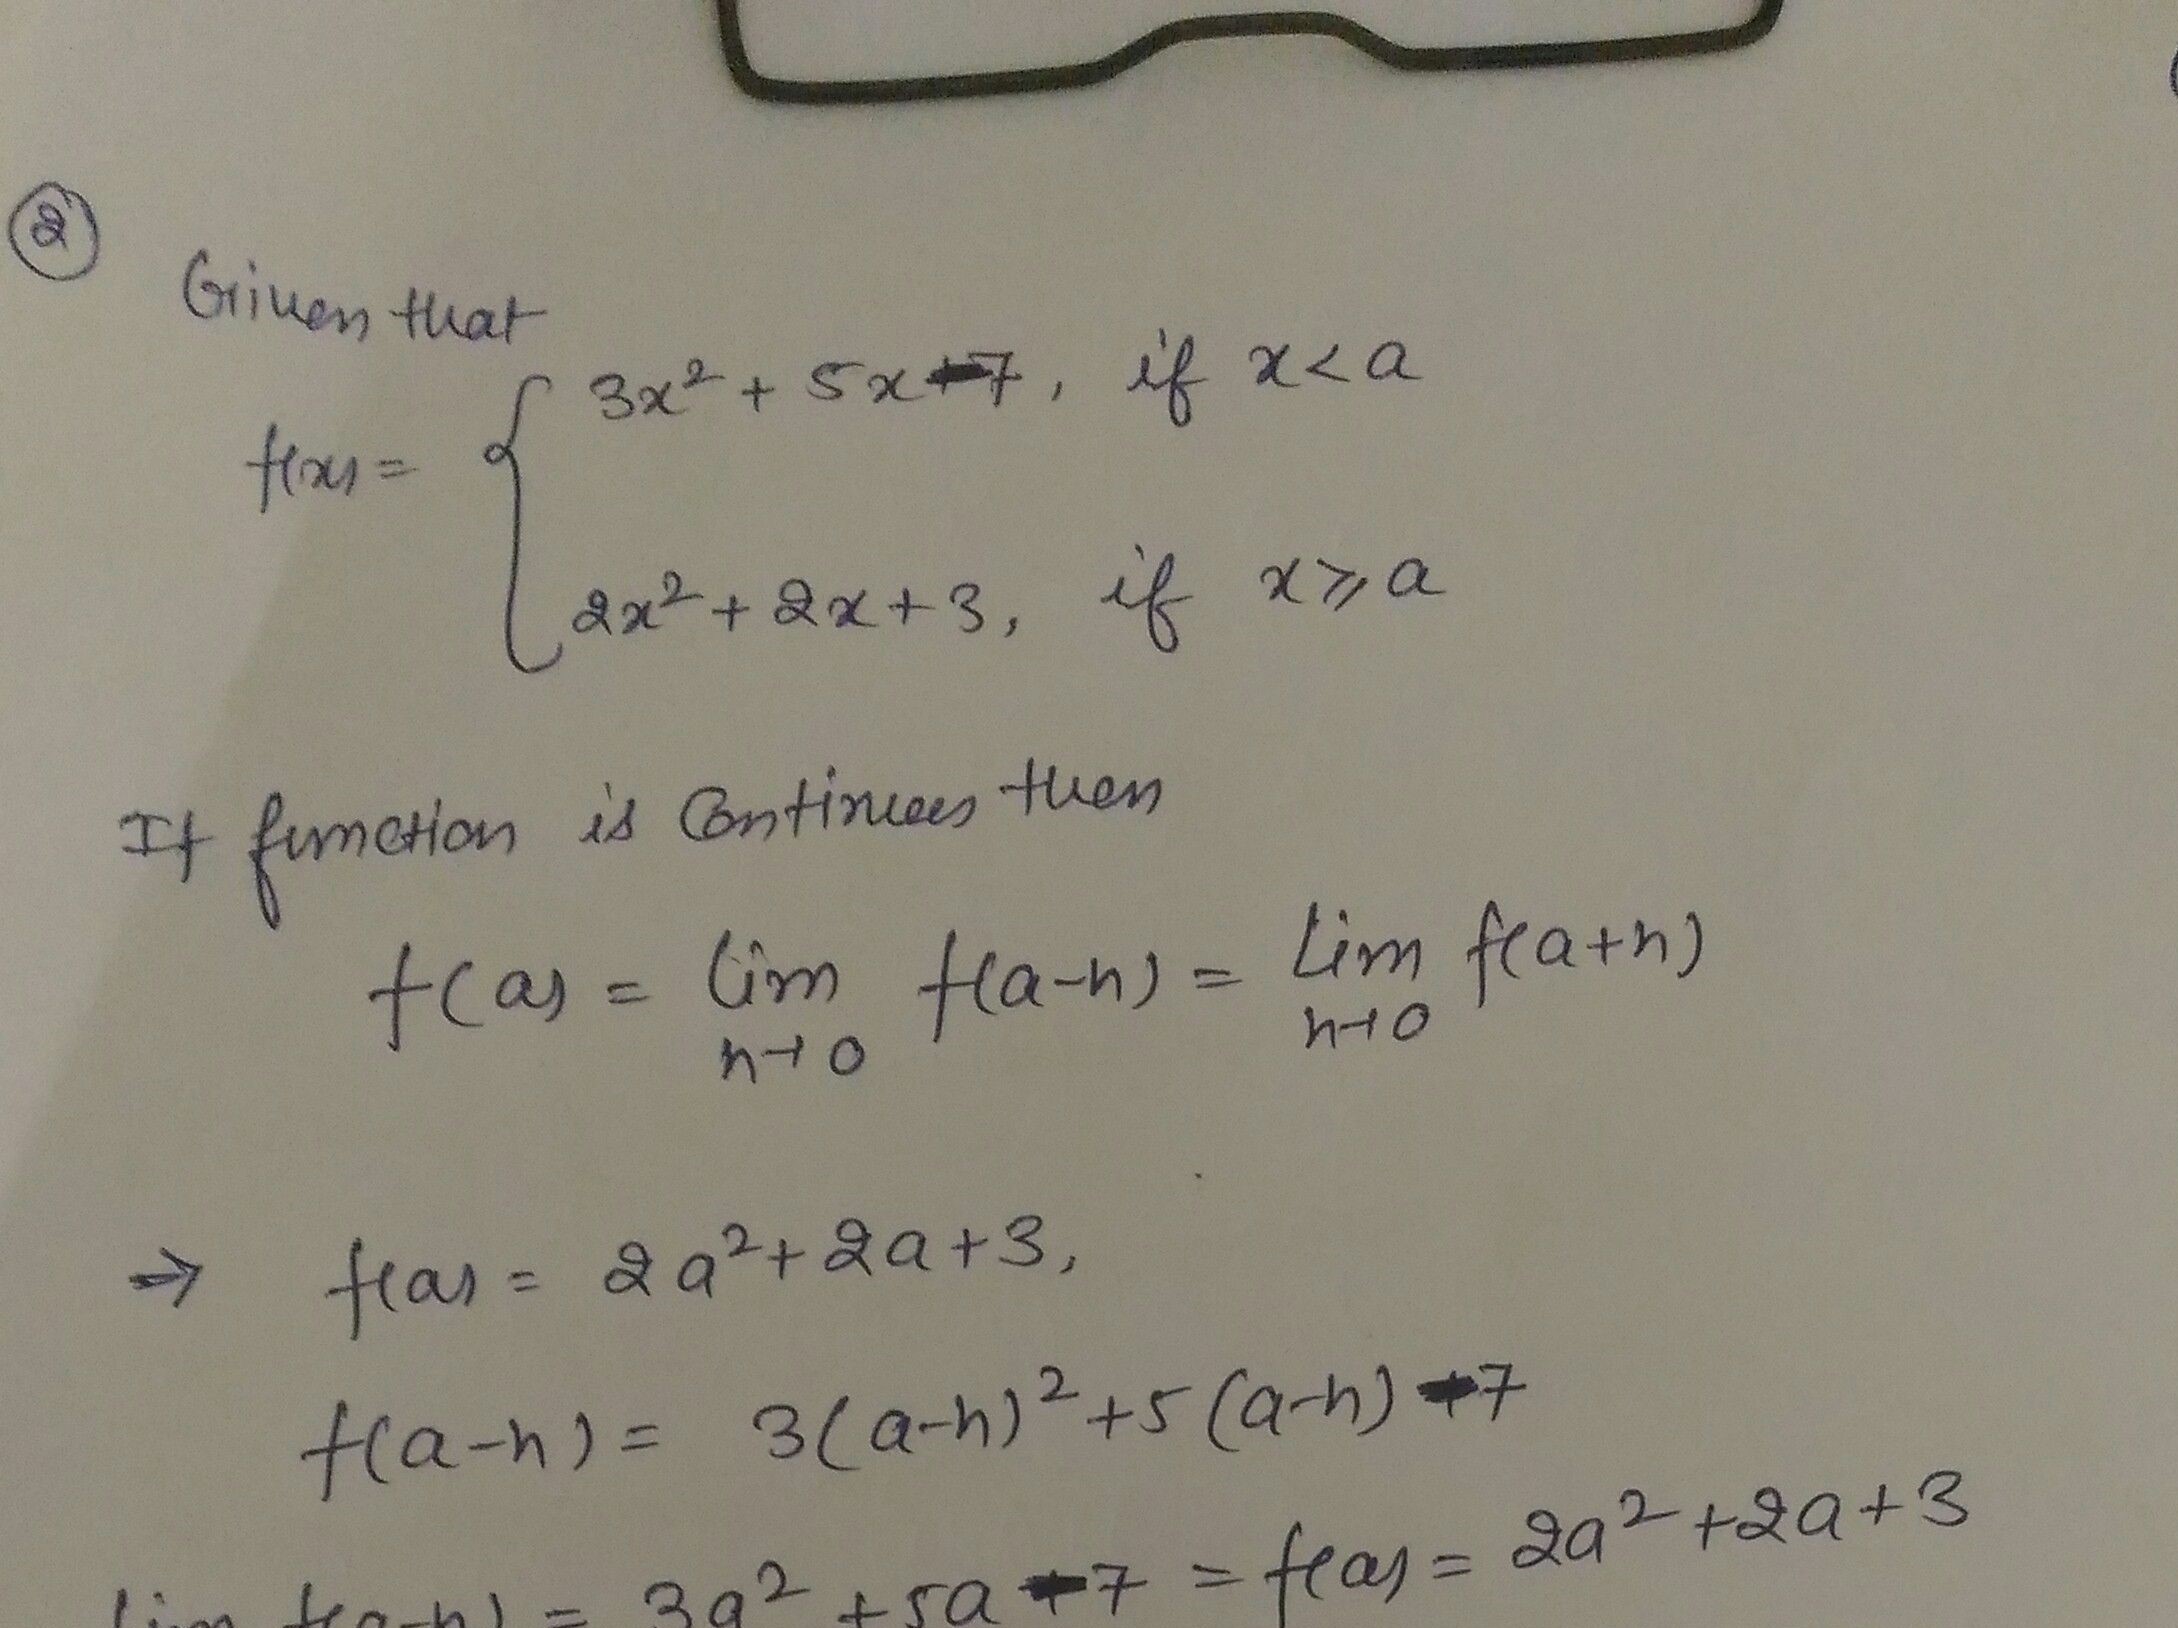 ②
Given that
f(x) = { 3x² + 5x - 7, if x < a
2x² + 2x + 3, if x ⩾ a
If function is Continues then
f(a) = lim f(a-h) = Lim f(a+h)
h→0 h→0
⇒ f(a) = 2a² + 2a + 3,
f(a-h) = 3(a-h)² + 5(a-h) - 7
lim f(a-h) = 3a² + 5a - 7 = f(a) = 2a² + 2a + 3